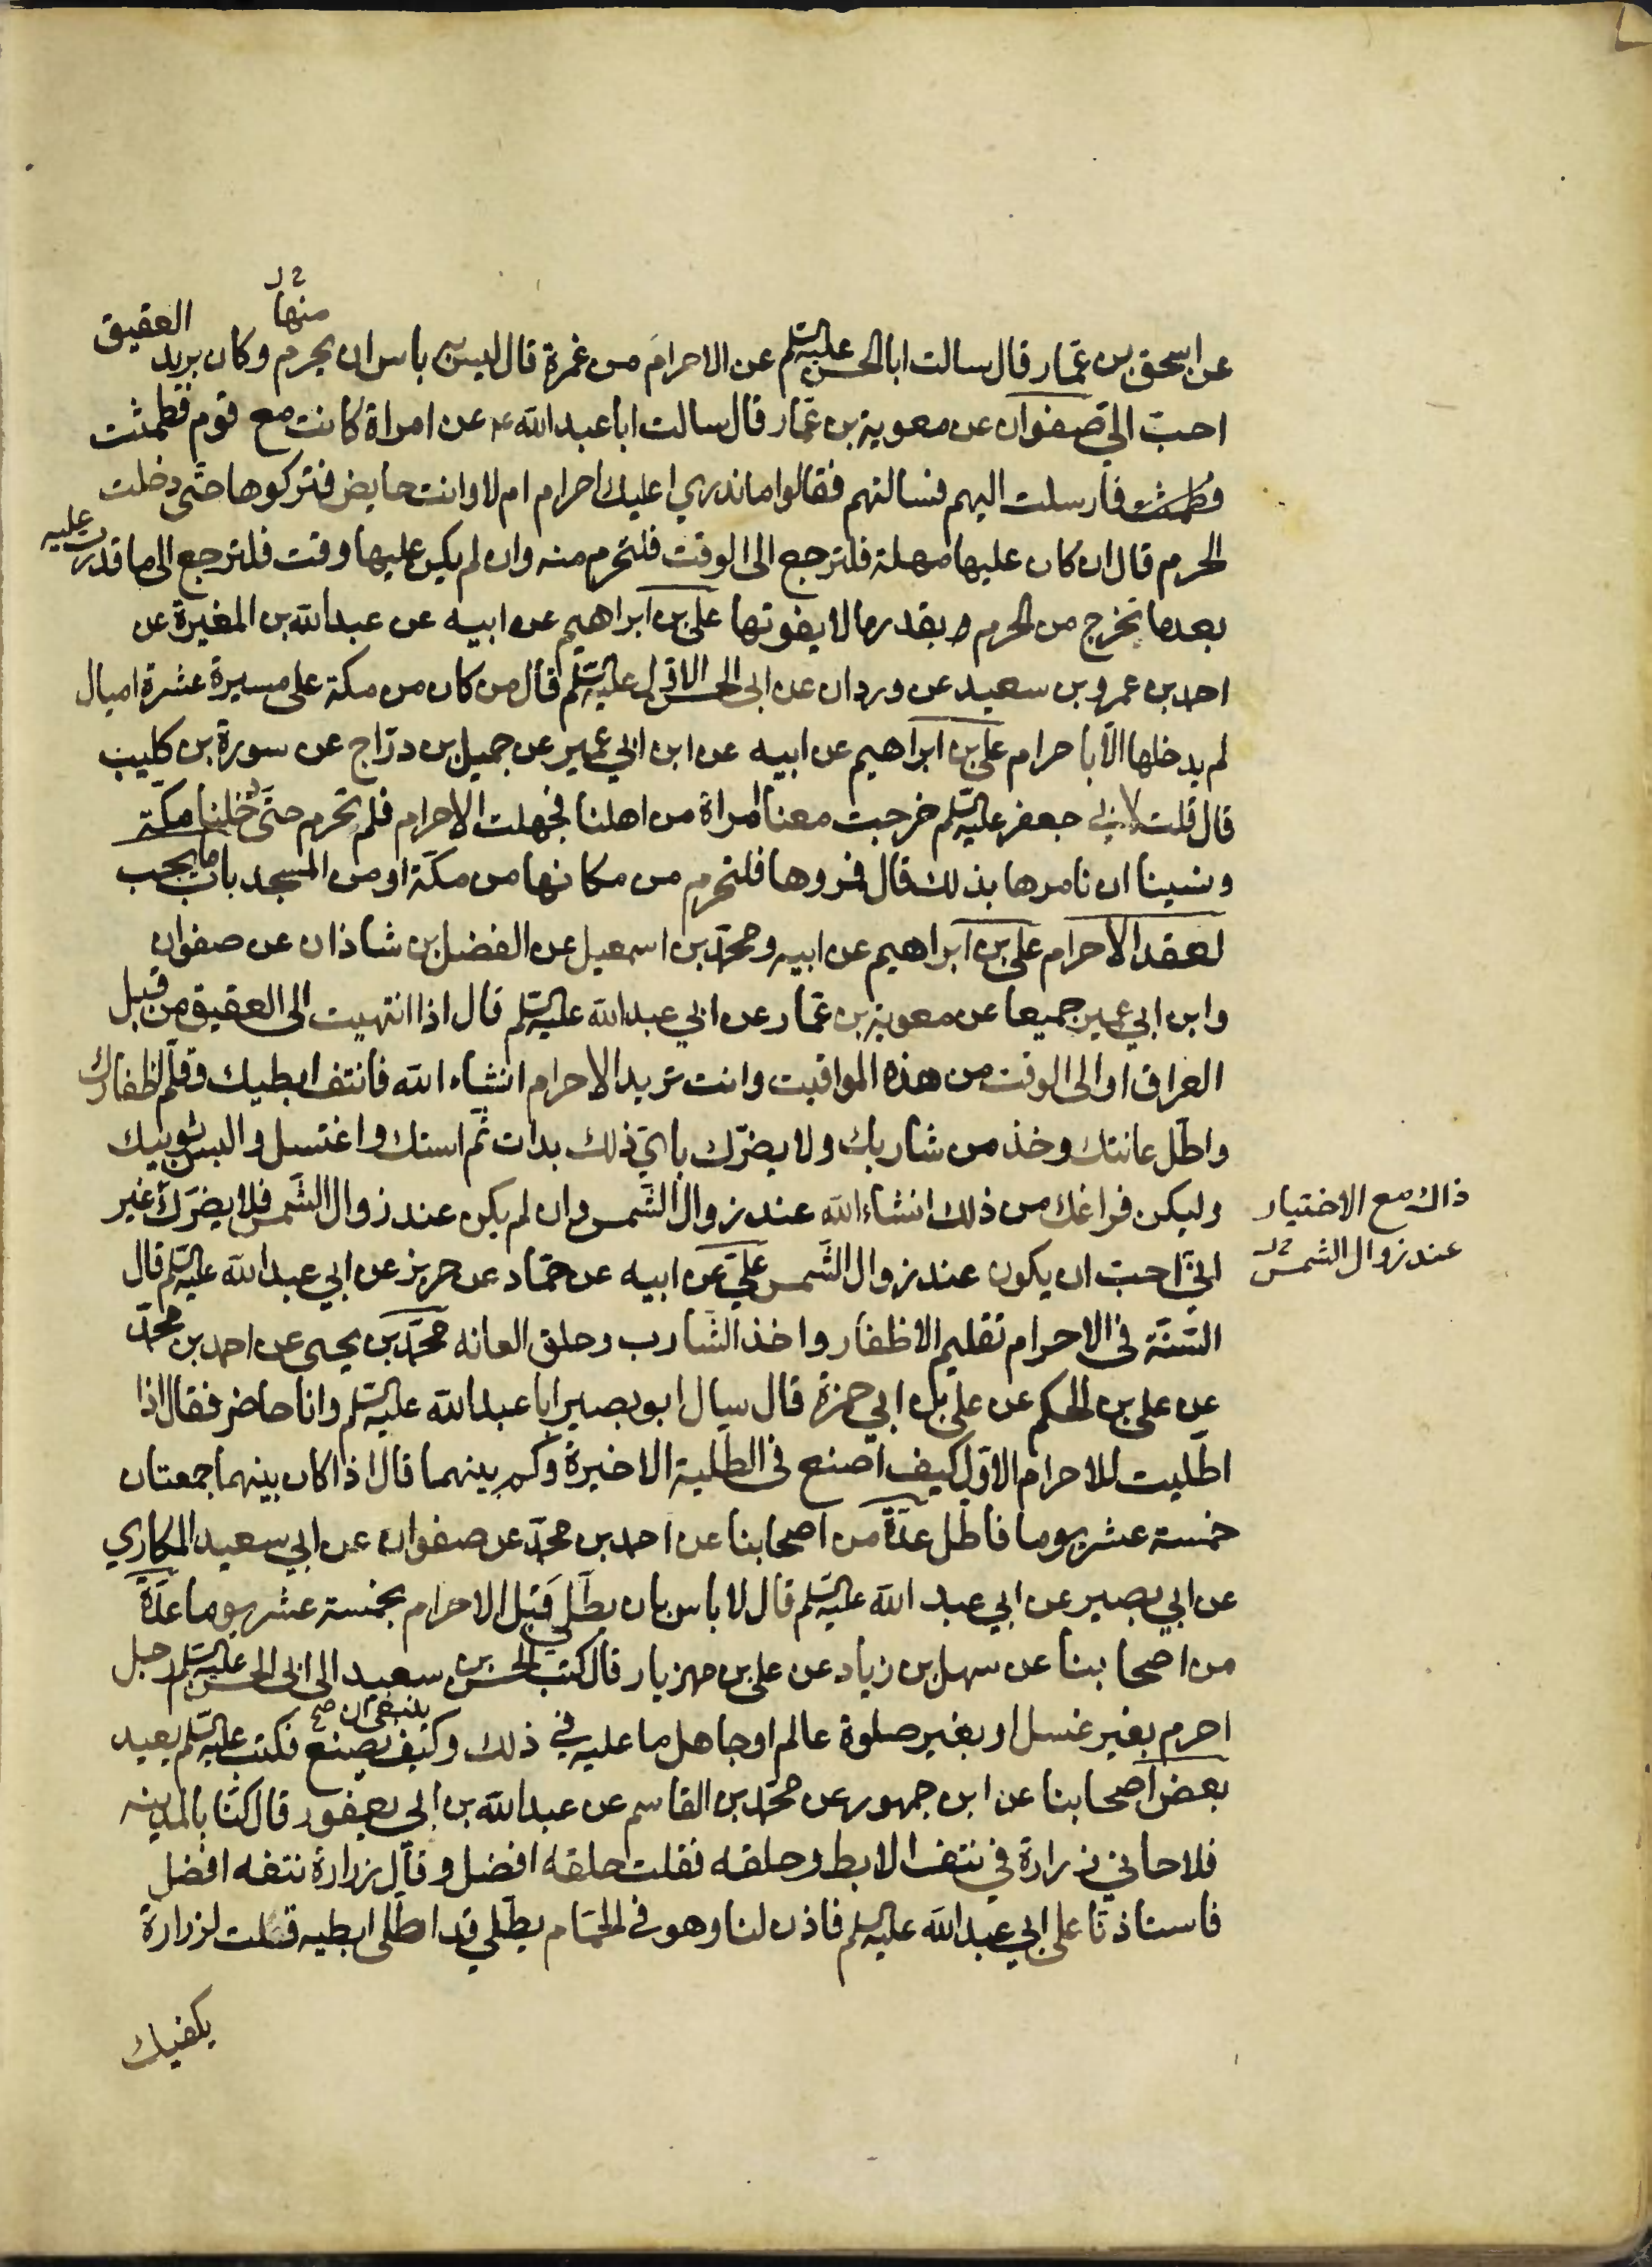 منها
عن اسحق بن عمّار قال سالت ابا الحسن عليه السّلم عن الاحرام من غمرة قال ليس به باس ان يحرم وكان بريد العقيق
احبّ اليّ صفوان عن معوية بن عمّار قال سالت ابا عبد الله ع عن امراة كانت مع قوم فطمثت
فطمثت فارسلت اليهم فسالتهم فقالوا ما ندري اعليك احرام ام لا وانت حايض فتركوها حتّى دخلت
الحرم قال ان كان عليها مهلة فلترجع الى الوقت فلتحرم منه وان لم يكن عليها وقت فلترجع الى ما قدرت عليه
بعد ما تخرج من الحرم بقدر ما لا يفوتها علي بن ابراهيم عن ابيه عن عبد الله بن المغيرة عن
احمد بن عمرو بن سعيد عن وردان عن ابي الحسن الاوّل عليه السّلم قال من كان من مكة على مسيرة عشرة اميال
لم يدخلها الّا باحرام علي بن ابراهيم عن ابيه عن ابن ابي عمير عن جميل بن درّاج عن سورة بن كليب
قال قلت لابي جعفر عليه السّلم خرجت معنا امراة من اهلنا فجهلت الاحرام فلم تحرم حتّى دخلنا مكّة
ونسينا ان نامرها بذلك قال فمروها فلتحرم من مكانها من مكّة او من المسجد باب ما يجب
لعقد الاحرام علي بن ابراهيم عن ابيه ومحمّد بن اسمعيل عن الفضل بن شاذان عن صفوان
وابن ابي عمير جميعا عن معوية بن عمّار عن ابي عبد الله عليه السّلم قال اذا انتهيت الى العقيق من قبل
العراق او الى الوقت من هذه المواقيت وانت تريد الاحرام انشاء الله فانتف ابطيك وقلّم اظفارك
واطل عانتك وخذ من شاربك ولا يضرّك بايّ ذلك بدات ثمّ استك واغتسل والبس ثوبيك
وليكن فراغك من ذلك انشاء الله عند زوال الشّمس وان لم يكن عند زوال الشّمس فلا يضرّك غير
ذاك مع الاختيار
عند زوال الشمس
انّي احبّ ان يكون عند زوال الشّمس عليّ عن ابيه عن حمّاد عن حريز عن ابي عبد الله عليه السّلم قال
السّنّة في الاحرام تقليم الاظفار واخذ الشّارب وحلق العانه محمّد بن يحيى عن احمد بن محمّد
عن علي بن الحكم عن علي بن ابي حمزة قال سال ابو بصير ابا عبد الله عليه السّلم وانا حاضر فقال اذا
اطّليت للاحرام الاوّل كيف اصنع في الطّلية الاخيرة وكم بينهما قال اذا كان بينهما جمعتان
خمسة عشر يوما فاطل عدّة من اصحابنا عن احمد بن محمّد عن صفوان عن ابي سعيد المكاري
عن ابي بصير عن ابي عبد الله عليه السّلم قال لا باس بان يطّلي قبل الاحرام بخمسة عشر يوما عدّة
من اصحابنا عن سهل بن زياد عن علي بن مهزيار قال كتب الحسن بن سعيد الى ابي الحسن عليه السّلم رجل
احرم بغير غسل او بغير صلوة عالم او جاهل ما عليه في ذلك وكيف ينبغي ان يصنع فكتب عليه السّلم يعيد
بعض اصحابنا عن ابن جمهور عن محمّد بن القاسم عن عبد الله بن ابي يعفور قال كنّا بالمدينه
فلاحاني زرارة في نتف الابط وحلقه فقلت حلقه افضل وقال زرارة نتفه افضل
فاستاذنّا على ابي عبد الله عليه السّلم فاذن لنا وهو في الحمّام يطّلي قد اطلى ابطيه فقلت لزرارة
يكفيك